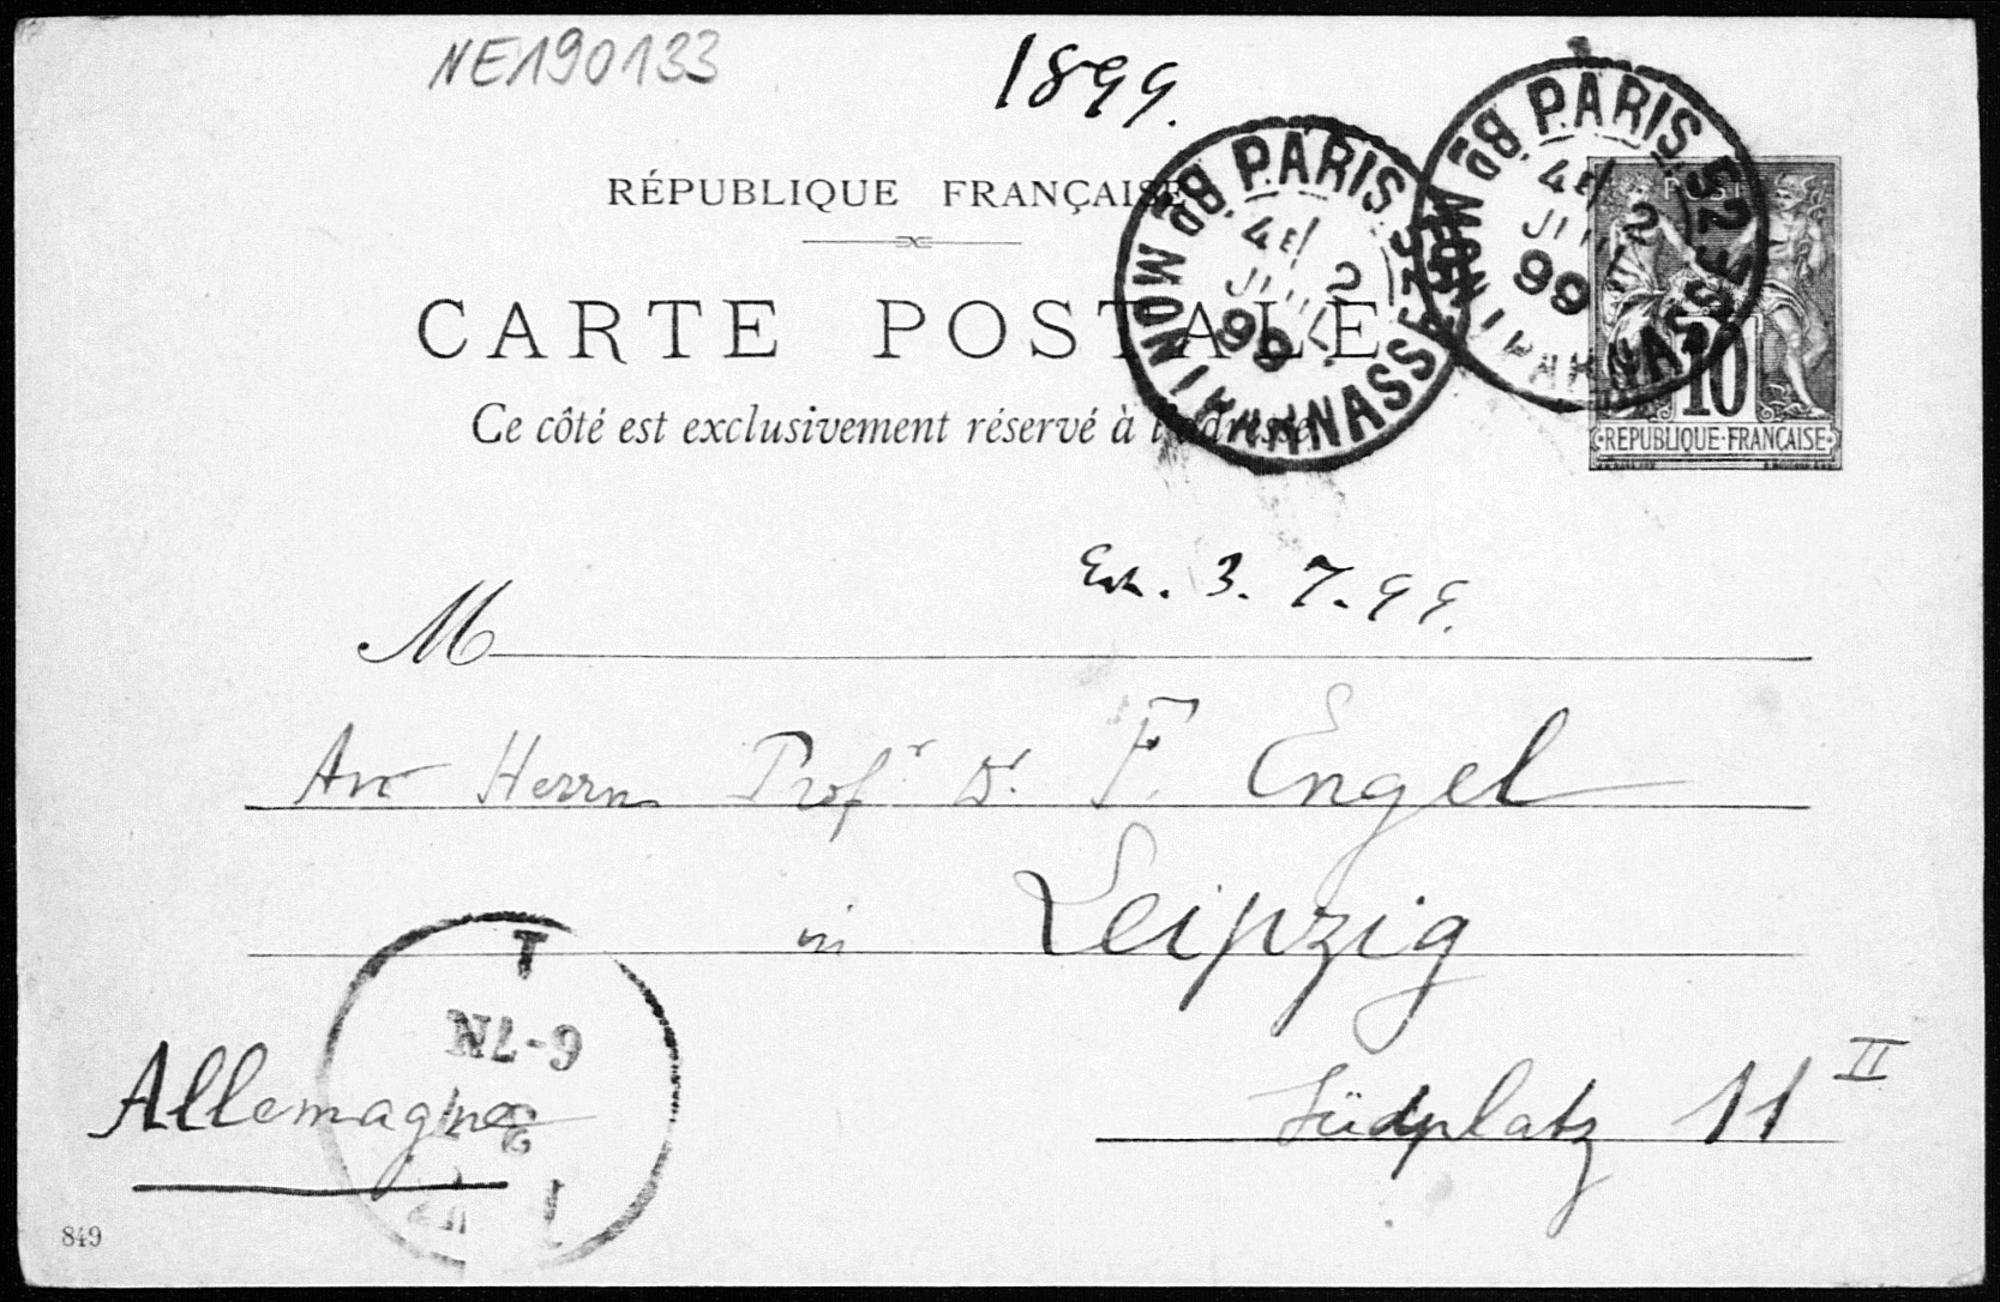 NE190133
1899.
RÉPUBLIQUE FRANÇAISE
CARTE POSTALE
Ce côté est exclusivement réservé à l'adresse
PARIS 52 Bd. MONTPARNASSE
4E 2 JUIL 99
PARIS 52 Bd. MONTPARNASSE
4E 2 JUIL 99
10
RÉPUBLIQUE FRANÇAISE
3. 7. 99.
M
An Herrn Profr Dr. F. Engel
in Leipzig
Südplatz 11 II
Allemagne
1
6-7N
3
849